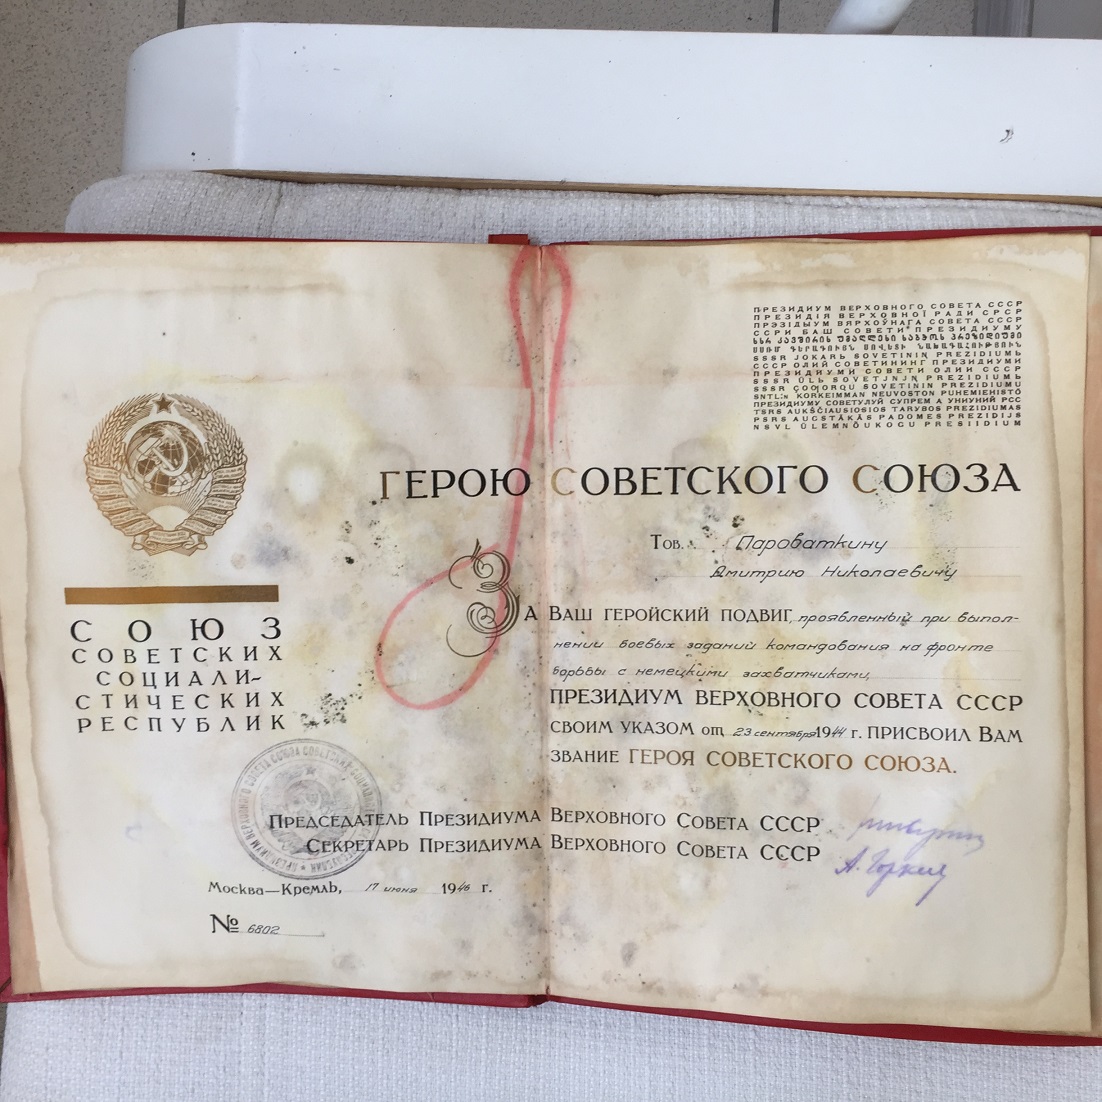 СОЮЗ
СОВЕТСКИХ
СОЦИАЛИ-
СТИЧЕСКИХ
РЕСПУБЛИК
ПРЕЗИДИУМ ВЕРХОВНОГО СОВЕТА СССР
ПРЕЗИДІЯ ВЕРХОВНОЇ РАДИ СРСР
ПРЭЗІДЫУМ ВЯРХОЎНАГА СОВЕТА СССР
ССРИ БАШ СОВЕТИ ПРЕЗИДИУМУ
SSSR JOKARЬ SOVETININ PREZIDIUMЬ
СССР ОЛИЙ СОВЕТИНИНГ ПРЕЗИДИУМИ
ПРЕЗИДИУМИ СОВЕТИ ОЛИИ СССР
SNTL:n KORKEIMMAN NEUVOSTON PUHEMIEHISTÖ
ПРЕЗИДИУМУ СОВЕТУЛУЙ СУПРЕМ А УНИУНИЙ РСС
TSRS AUKŠČIAUSIOSIOS TARYBOS PREZIDIUMAS
PSRS AUGSTĀKĀS PADOMES PREZIDIJS
NSVL ÜLEMNÕUKOGU PRESIIDIUM
ГЕРОЮ СОВЕТСКОГО СОЮЗА
Тов. Пароваткину
Дмитрию Николаевичу
ЗА ВАШ ГЕРОЙСКИЙ ПОДВИГ, проявленный при выпол-
нении боевых заданий командования на фронте
борьбы с немецкими захватчиками,
ПРЕЗИДИУМ ВЕРХОВНОГО СОВЕТА СССР
СВОИМ УКАЗОМ от 23 сентября 1944 г. ПРИСВОИЛ ВАМ
ЗВАНИЕ ГЕРОЯ СОВЕТСКОГО СОЮЗА.
ПРЕДСЕДАТЕЛЬ ПРЕЗИДИУМА ВЕРХОВНОГО СОВЕТА СССР
СЕКРЕТАРЬ ПРЕЗИДИУМА ВЕРХОВНОГО СОВЕТА СССР А. Горкин
МОСКВА—КРЕМЛЬ, 17 июня 1946 г.
№ 6802